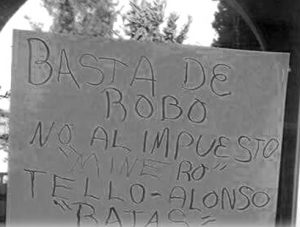 BASTA DE
ROBO
NO AL IMPUESTO
"MINERO"
TELLO-ALONSO
"RATAS"